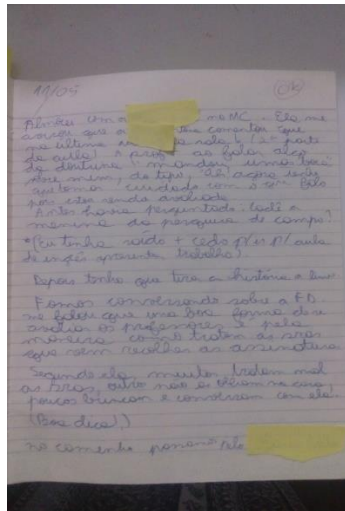 19/05 OK
Almocei com a no MC. Ela me
avisou que a comentou que
na última na sala 6 (2ª parte
da aula) A prof ao falar algo
da doutrina mandou uma
sobre mim, do tipo, "Ah! agora tenho
que tomar cuidado com o que falo
por estar sendo avaliada
Antes havia perguntado: Cadê a
menina da pesquisa de campo?
*(Eu tinha saído + cedo p/ ir p/ aula
de inglês apresentar trabalho)
Depois tenho que tirar a história a limpo.
Fomos conversando sobre a FD.
me falou que uma boa forma de se
avaliar os professores é pela
maneira como tratam as sras
que vem recolher as assinaturas
Segundo ela, muitos tratam mal
as sras, outros não as olham na cara,
poucos brincam e conversam com elas.
(Boa dica!)
no caminho pelo